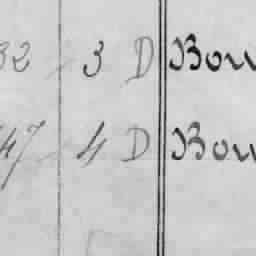 32 3 D Bou
47 4 D Bou